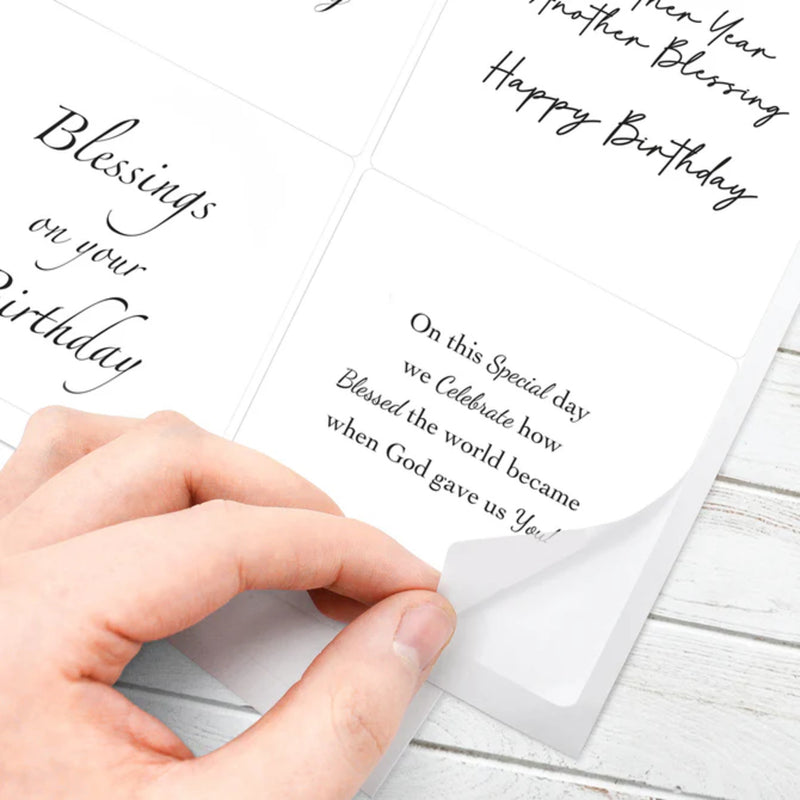 Year
Another Blessing
Happy Birthday
Blessings
on your
Birthday
On this Special day
we Celebrate how
Blessed the world became
when God gave us You!